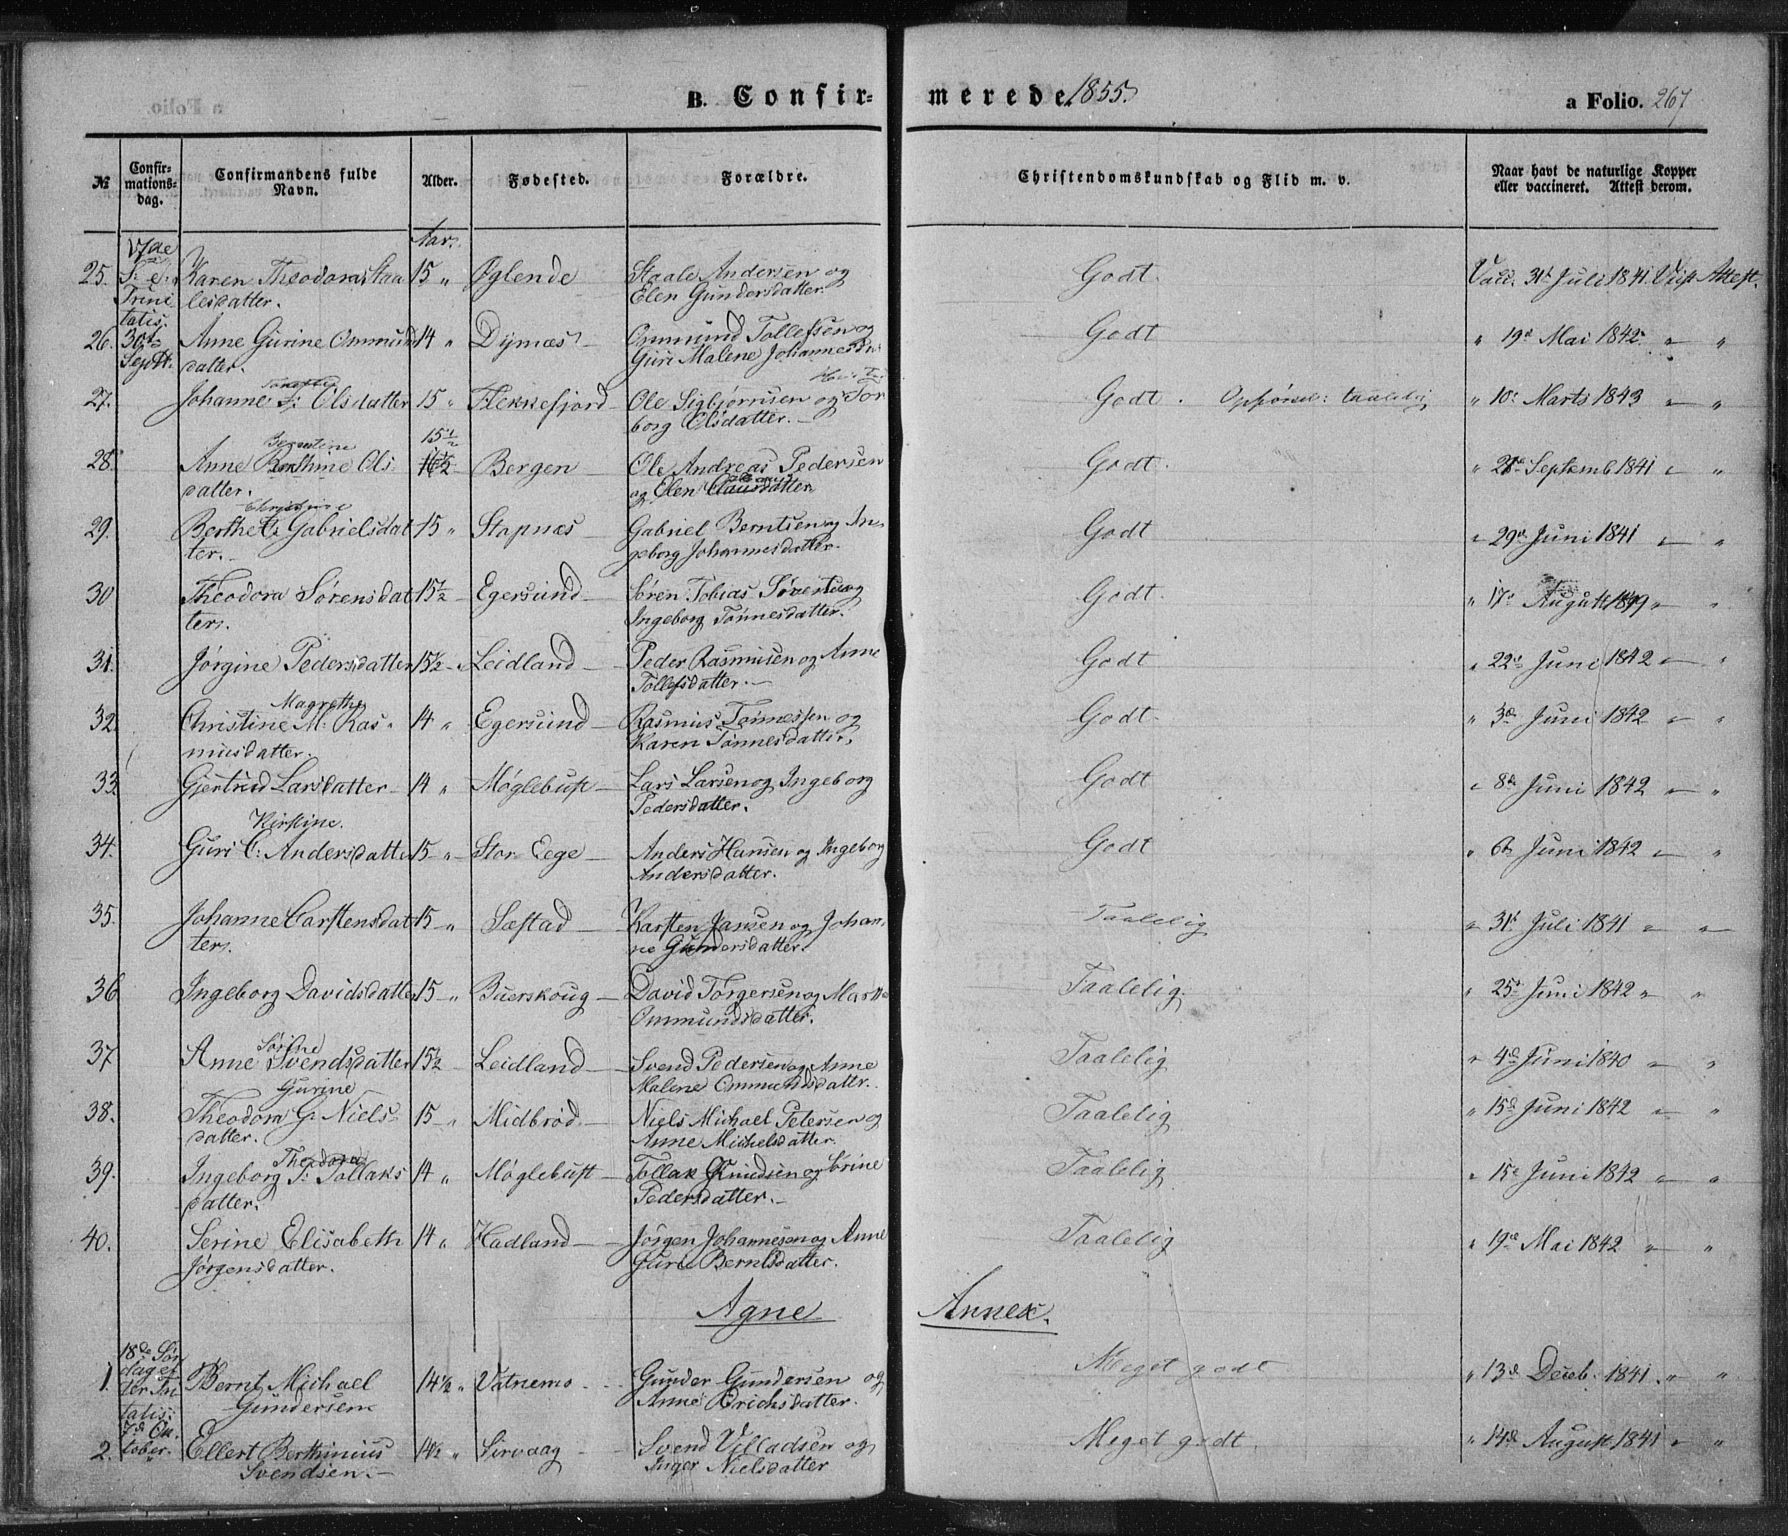 B. Confirmerede 1855. a Folio. 267
№ Confirmationsdag. Confirmandens fulde Navn. Alder. Fødested. Forældre. Christendomskundskab og Flid m. v. Naar havt de naturlige Kopper eller vaccineret. Attest derom.
17de S: e: Trinitatis. 30te Septbr. Aar.
25. Karen Theodora Staa 15 " Øglende Staale Andersen og Godt. Vacc. 31t Juli 1841 Vist Attest.
lesdatter. Elen Gundersdatter.
26. Anne Gurine Ommunds 14 " Dyrnæs Ommund Tollefsen og Godt " 19de Mai 1842 " "
datter. Guri Malene Johannesd:
27. Johanne T: Olsdatter 15 " Flekkefjord Ole Sigbjørnsen og Tor Godt. Opførsel: taalelig " 10: Marts 1843 " "
borg Olsdatter.
Bergentine 15 1/2
28. Anne Ols- Bergen Ole Andreas Pedersen Godt. " 28de Septemb 1841 " "
datter. og Elen Clausdatter
Christine
29. Berthe C: Gabrielsdat 15 " Stapnæs Gabriel Berntsen og In Godt " 29de Juni 1841 " "
ter. geborg Johannesdatter.
30 Theodora Sørensdat 15 1/2 Egersund Søren Tobias Sørensen og Godt. " 17de August " "
ter. Ingeborg Tønnesdatter.
31. Jørgine Pedersdatter 15 1/2 Leidland Peder Rasmusen og Anne Godt " 22de Juni 1842 " "
Tollefsdatter.
Magrethe
32. Christine M: Ras- 14 " Egersund Rasmus Tønnessen og Godt. " 3de Juni 1842 " "
musdatter. Karen Tønnesdatter.
33. Gjertrud Larsdatter 14 " Møglebust Lars Larsen og Ingeborg Godt " 8de Juni 1842 " "
Pedersdatter.
Kirstine.
34. Guri C: Andersdatter 15 " Stor Eege Anders Hansen og Ingeborg Godt " 6te Juni 1842 " "
Andersdatter.
35. Johanne Carstensdat 15 " Sæstad Karsten Jansen og Johan Taalelig " 31t Juli 1841 " "
ter. ne Gundersdatter.
36 Ingeborg Davidsdatter 15 " Buerskoug David Torgersen og Marthe Taalelig. " 25de Juni 1842 " "
Ommundsdatter.
Sørine
37 Anne Svendsdatter 15 1/2 Leidland Svend Pedersen og Anne Taalelig " 4de Juni 1840 " "
Malene Ommundsdattr.
Gurine
38. Theodora G: Niels- 15 " Midbrød Niels Michael Petersen og Taalelig " 15de Juni 1842 " "
datter. Anne Michelsdatter.
Theodora
39. Ingeborg T: Tollaks 14 " Møglebust Tollak Knudsen og Sørine Taalelig " 15de Juni 1842 " "
datter. Pedersdatter.
40. Serine Elisabeth 14 " Hadland Jørgen Johannesen og Anne Taalelig " 19de Mai 1842 " "
Jørgensdatter. Guri Berntsdatter.
Agne Annex.
18de Søndag efter Trinitatis: 7de October.
1. Bernt Michael 14 1/2 " Vatnemo Gunder Gundersen og Meget godt " 13de Deceb. 1841. " "
Gundersen Anne Erichsdatter.
2. Ellert Berthinius 14 1/2 " Sirvaag Svend Villadsen og Meget godt. " 14de August 1841 " "
Svendsen. Inger Nielsdatter